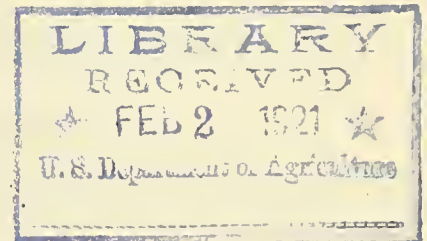 LIBRARY
RECEIVED
★ FEB 2 1921 ★
U. S. Department of Agriculture